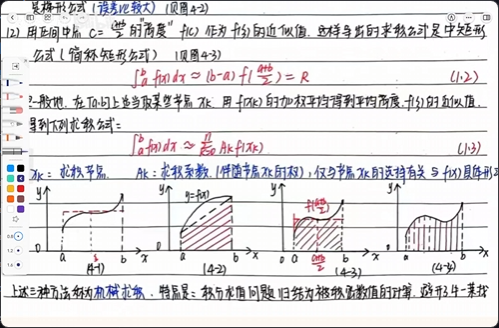 是梯形公式(误差比较大)(见图4-2)
(2) 用区间中点 C=(a+b)/2 的"高度" f(c) 作为 f(ξ) 的近似值,这样导出的求积公式是中矩形
公式(简称矩形公式)(见图4-3)
∫_a^b f(x)dx ≈ (b-a) f((a+b)/2) = R (1.2)
一般地,在[a,b]上适当取某些节点 xk,用 f(xk) 的加权平均得到平均高度 f(ξ) 的近似值,
得到下列求积公式:
∫_a^b f(x)dx ≈ Σ_{k=0}^n Ak f(xk) (1.3)
xk:求积节点. Ak:求积系数.(伴随节点xk的权),仅与节点xk的选择有关与f(x)具体形式
y y y=f(x) y f((a+b)/2) y
0 a ξ b x 0 a b x 0 a (a+b)/2 b x 0 a b x
(4-1) (4-2) (4-3) (4-4)
上述三种方法称为机械求积.特点是:积分求值问题归结为被积函数值的计算.